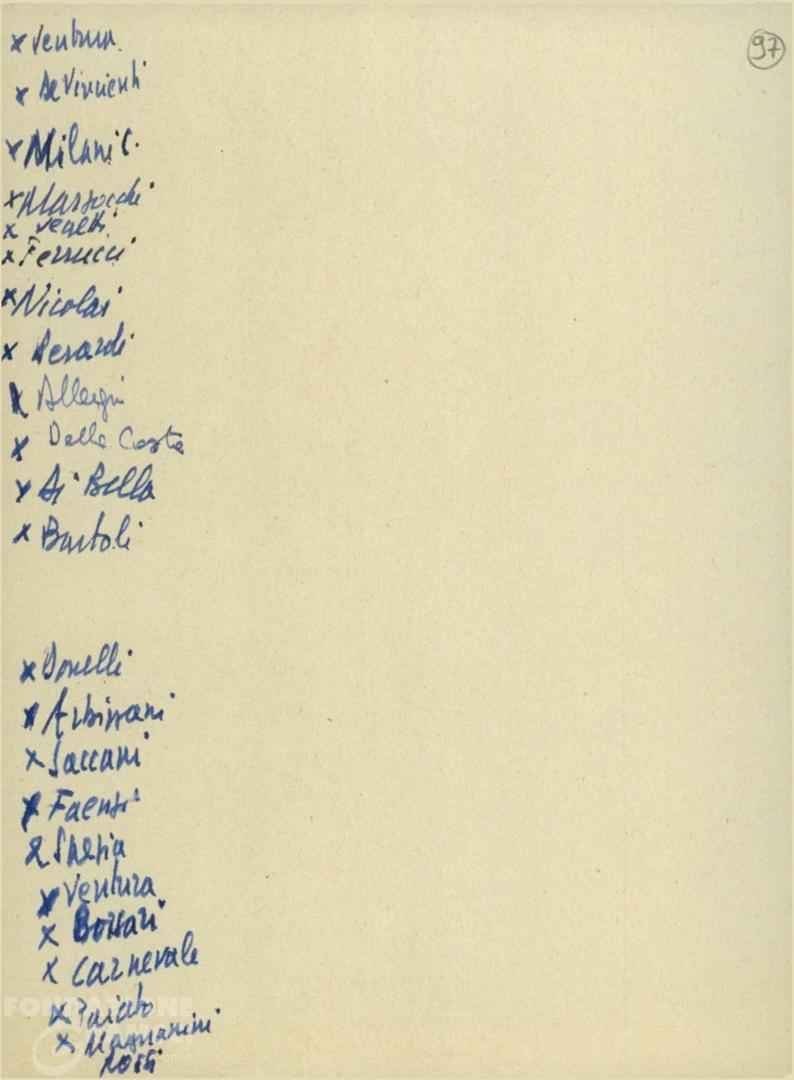 97
x Ventura
x De Vincenti
x Milani C.
x Marzocchi
x Vegetti
x Ferrucci
x Nicolai
x Berardi
x Allegri
x Dalla Costa
x Di Bella
x Bartoli
x Donelli
x Arbizzani
x Saccani
x Faenzi
x Spezia
x Ventura
x Borrari
x Carnevale
x
x Magnanini
Rossi
FONDAZIONE